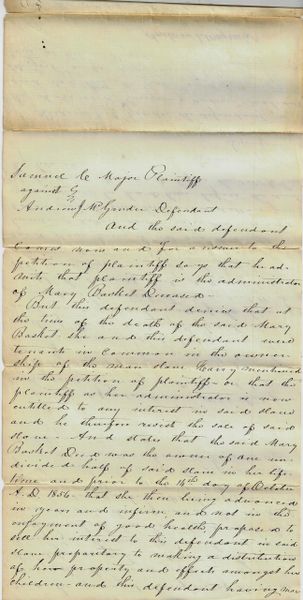 Samuel C Major Plaintiff
against
Andrew J McGruder Defendant
And the said defendant
comes now and for answer to the
petition of plaintiff says that he ad-
mits that plaintiff is the administrator
of Mary Basket Deceased—
But this defendant denies that at
the time of the death of the said Mary
Basket she and this defendant were
tenants in common in the owner
ship of the man slave Harry mentioned
in the petition of plaintiff— or that the
plaintiff as her administrator is now
entitled to any interest in said slave
and he therefore resists the sale of said
slave— And states that the said Mary
Basket Decd was the owner of one un
divided half of said slave in her life
time and prior to the 14th day of October
A.D 1856 that she then being advanced
in years and infirm and not in the
enjoyment of good health proposed to
sell her interest to this defendant in said
slave preparitary to making a distribution
of her property and effects amongst her
children— and this defendant having